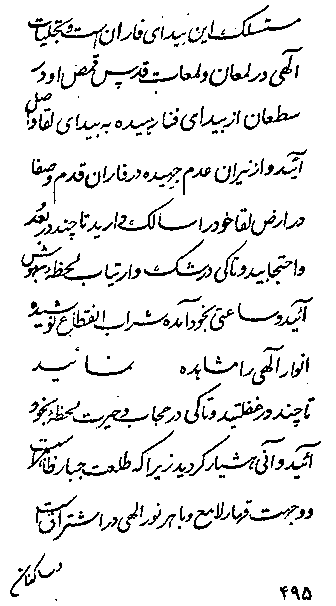 مستسلک این بیدای فاران است و تجلیات
الهی در لمعان و لمعات قدس قمص او در
سطعان از بیدای فنا رسیده به بیدای لقا داخل
آئید و از نیران عدم جهیده در فاران قدم و صفا
در ارض لقا خود را سالک دارید تا چند در بُعد
و احتجابید و تا کی در شک و ارتیاب لحظهٔ بهوش
آئید و ساعتی بخود آمده شراب انقطاع نوشید و
انوار الهی را مشاهده نمائید
تا چند در غفلتید و تا کی در حجاب و حیرت لحظهٔ بخود
آئید و آنی هشیار گردید زیرا که طلعت جبار ظاهر است
و وجهت قهار لامع و باهر نور الهی در اشتراق است
۴۹۵